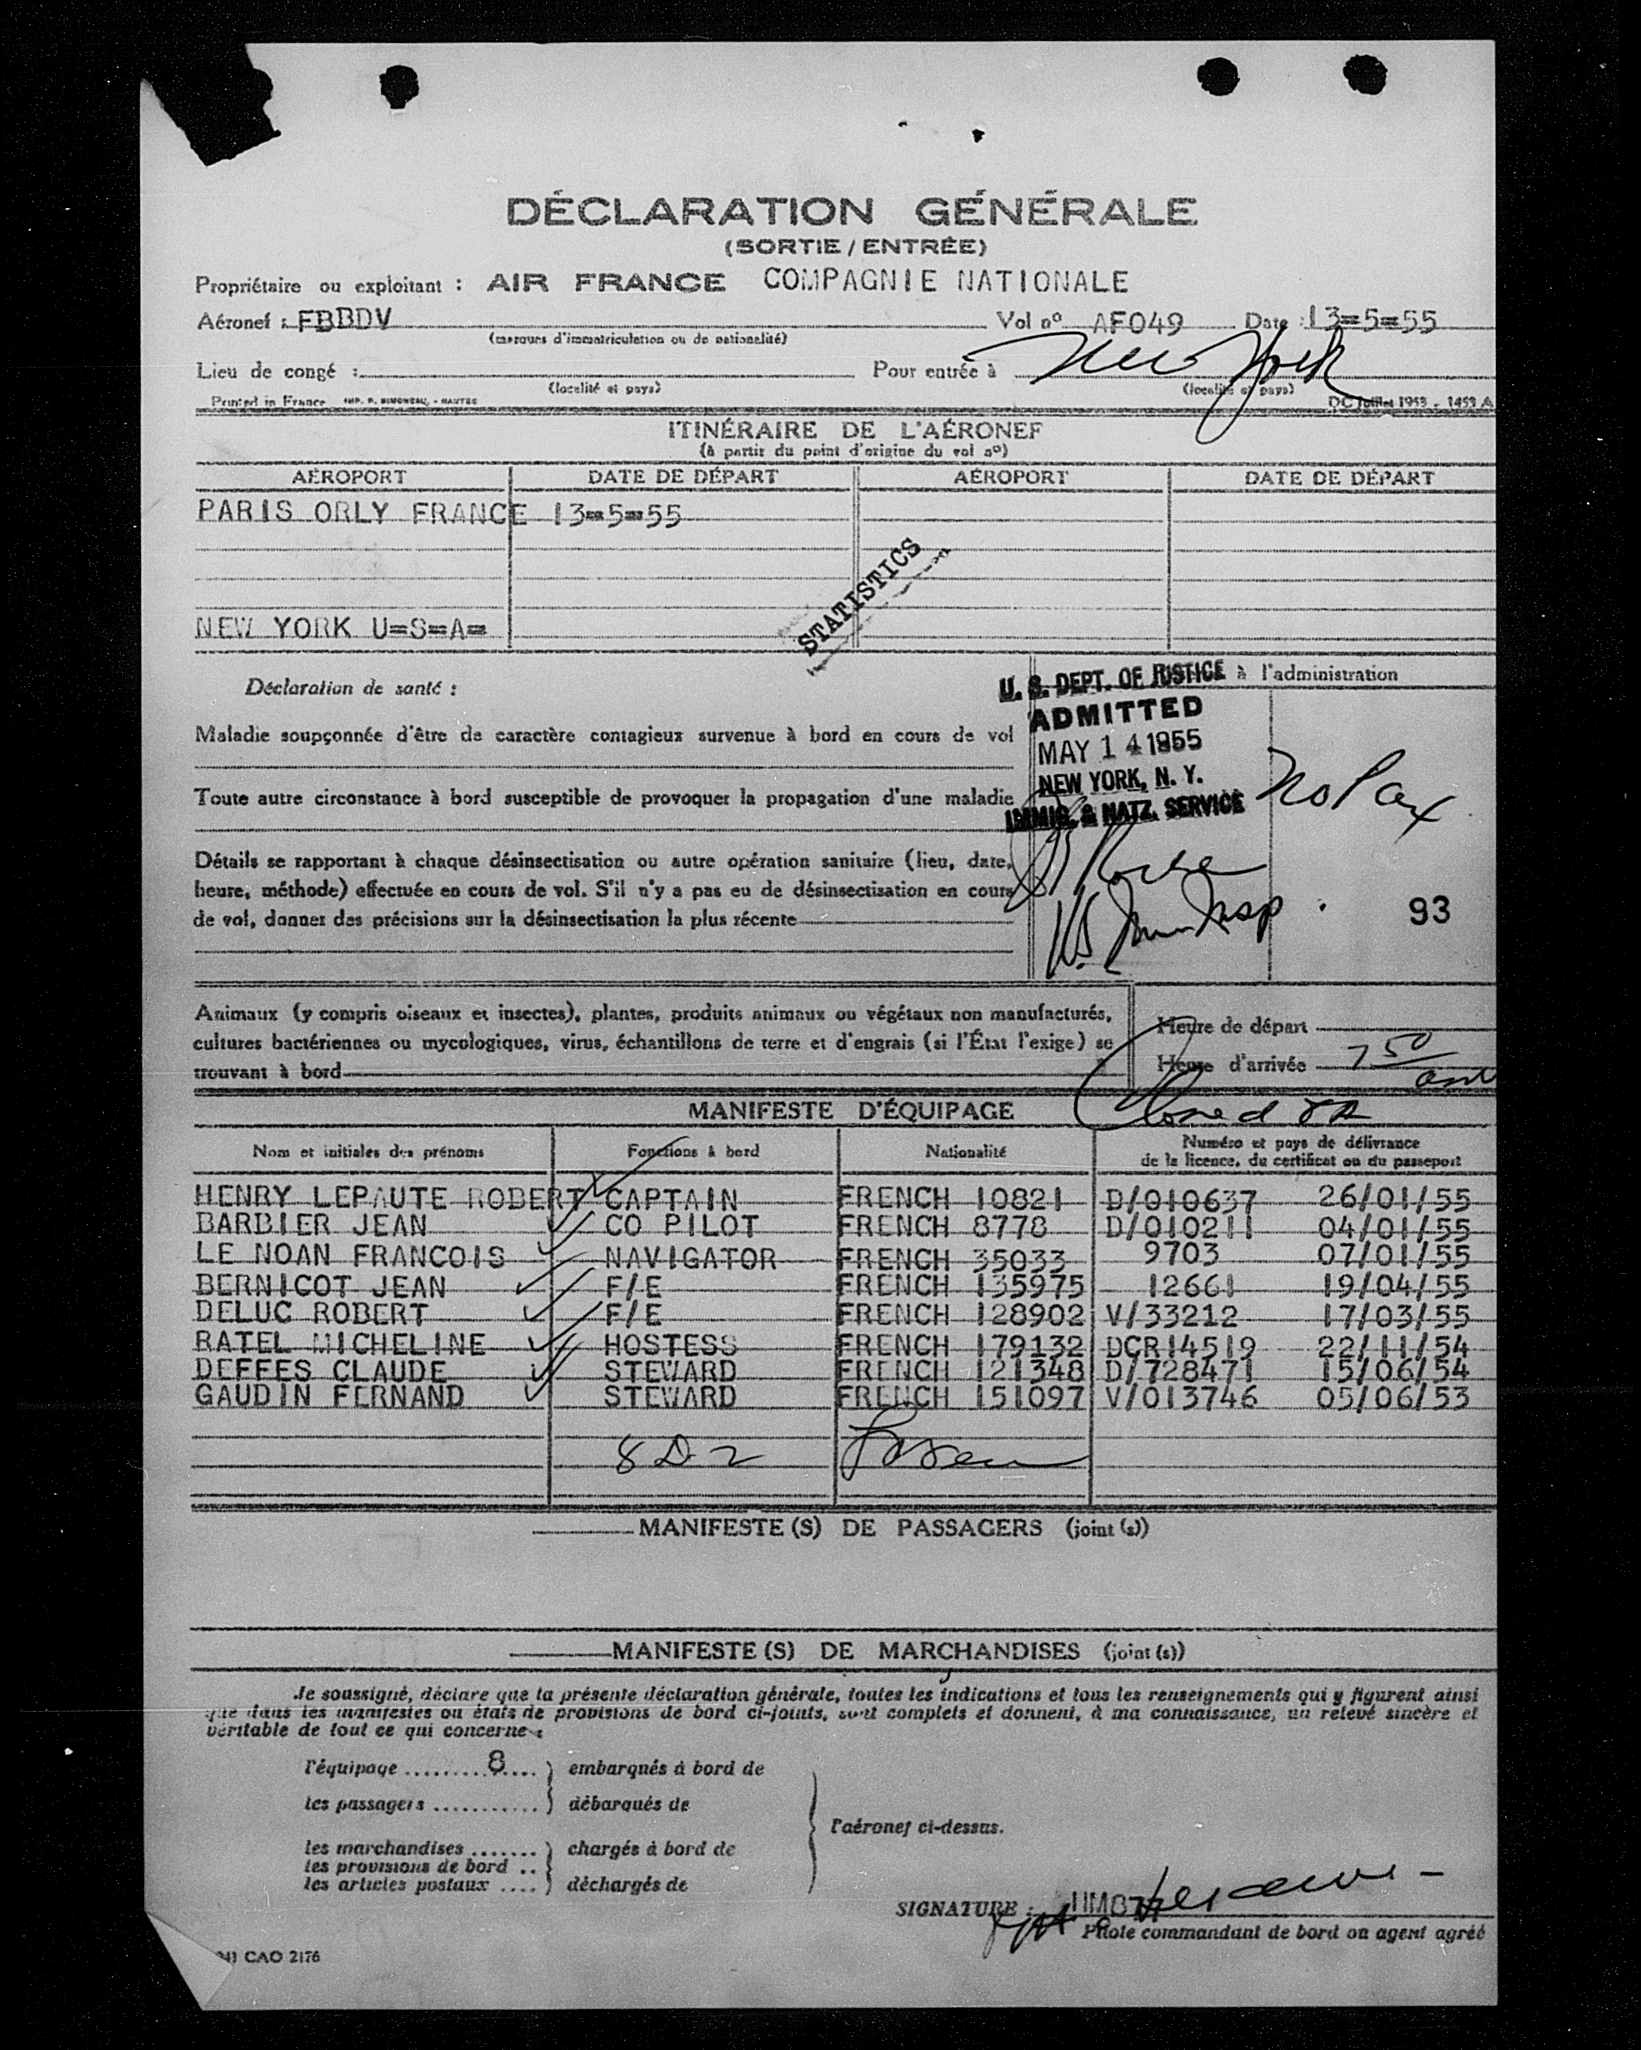 DÉCLARATION GÉNÉRALE
(SORTIE / ENTRÉE)
Propriétaire ou exploitant : AIR FRANCE COMPAGNIE NATIONALE
Aéronef : FBBDV Vol nº AF049 Date : 13=5=55
(marques d'immatriculation ou de nationalité)
Lieu de congé : Pour entrée à New York
(localité et pays) (localité et pays)
Printed in France IMP. P. SIMONEAU, - NANTES DC Juillet 1953 - 1453 A
ITINÉRAIRE DE L'AÉRONEF
(à partir du point d'origine du vol nº)
AÉROPORT DATE DE DÉPART AÉROPORT DATE DE DÉPART
PARIS ORLY FRANCE 13=5=55
STATISTICS
NEW YORK U=S=A=
Déclaration de santé : à l'administration
U. S. DEPT. OF JUSTICE
ADMITTED
MAY 14 1955
NEW YORK, N. Y.
IMMIG. & NATZ. SERVICE
No Pax
Maladie soupçonnée d'être de caractère contagieux survenue à bord en cours de vol
Toute autre circonstance à bord susceptible de provoquer la propagation d'une maladie
Détails se rapportant à chaque désinsectisation ou autre opération sanitaire (lieu, date,
heure, méthode) effectuée en cours de vol. S'il n'y a pas eu de désinsectisation en cours
de vol, donner des précisions sur la désinsectisation la plus récente
Insp.
93
Animaux (y compris oiseaux et insectes), plantes, produits animaux ou végétaux non manufacturés,
cultures bactériennes ou mycologiques, virus, échantillons de terre et d'engrais (si l'État l'exige) se
trouvant à bord
Heure de départ
Heure d'arrivée 7 50 am
MANIFESTE D'ÉQUIPAGE Closed
Nom et initiales des prénoms Fonctions à bord Nationalité Numéro et pays de délivrance
de la licence, du certificat ou du passeport
HENRY LEPAUTE ROBERT CAPTAIN FRENCH 10821 D/010637 26/01/55
BARBIER JEAN CO PILOT FRENCH 8778 D/010211 04/01/55
LE NOAN FRANCOIS NAVIGATOR FRENCH 35033 9703 07/01/55
BERNICOT JEAN F/E FRENCH 135975 12661 19/04/55
DELUC ROBERT F/E FRENCH 128902 V/33212 17/03/55
RATEL MICHELINE HOSTESS FRENCH 179132 DCR14519 22/11/54
DEFFES CLAUDE STEWARD FRENCH 121348 D/728471 15/06/54
GAUDIN FERNAND STEWARD FRENCH 151097 V/013746 05/06/53
8 D 2
MANIFESTE (S) DE PASSAGERS (joint (s))
MANIFESTE (S) DE MARCHANDISES (joint (s))
Je soussigné, déclare que la présente déclaration générale, toutes les indications et tous les renseignements qui y figurent ainsi
que dans les manifestes ou états de provisions de bord ci-joints, sont complets et donnent, à ma connaissance, un relevé sincère et
véritable de tout ce qui concerne :
l'équipage ......... 8 .... ) embarqués à bord de
les passagers ............ ) débarqués de
l'aéronef ci-dessus.
les marchandises ....... ) chargés à bord de
les provisions de bord ..
les articles postaux .... ) déchargés de
SIGNATURE :
Pilote commandant de bord ou agent agréé
CAO 2176